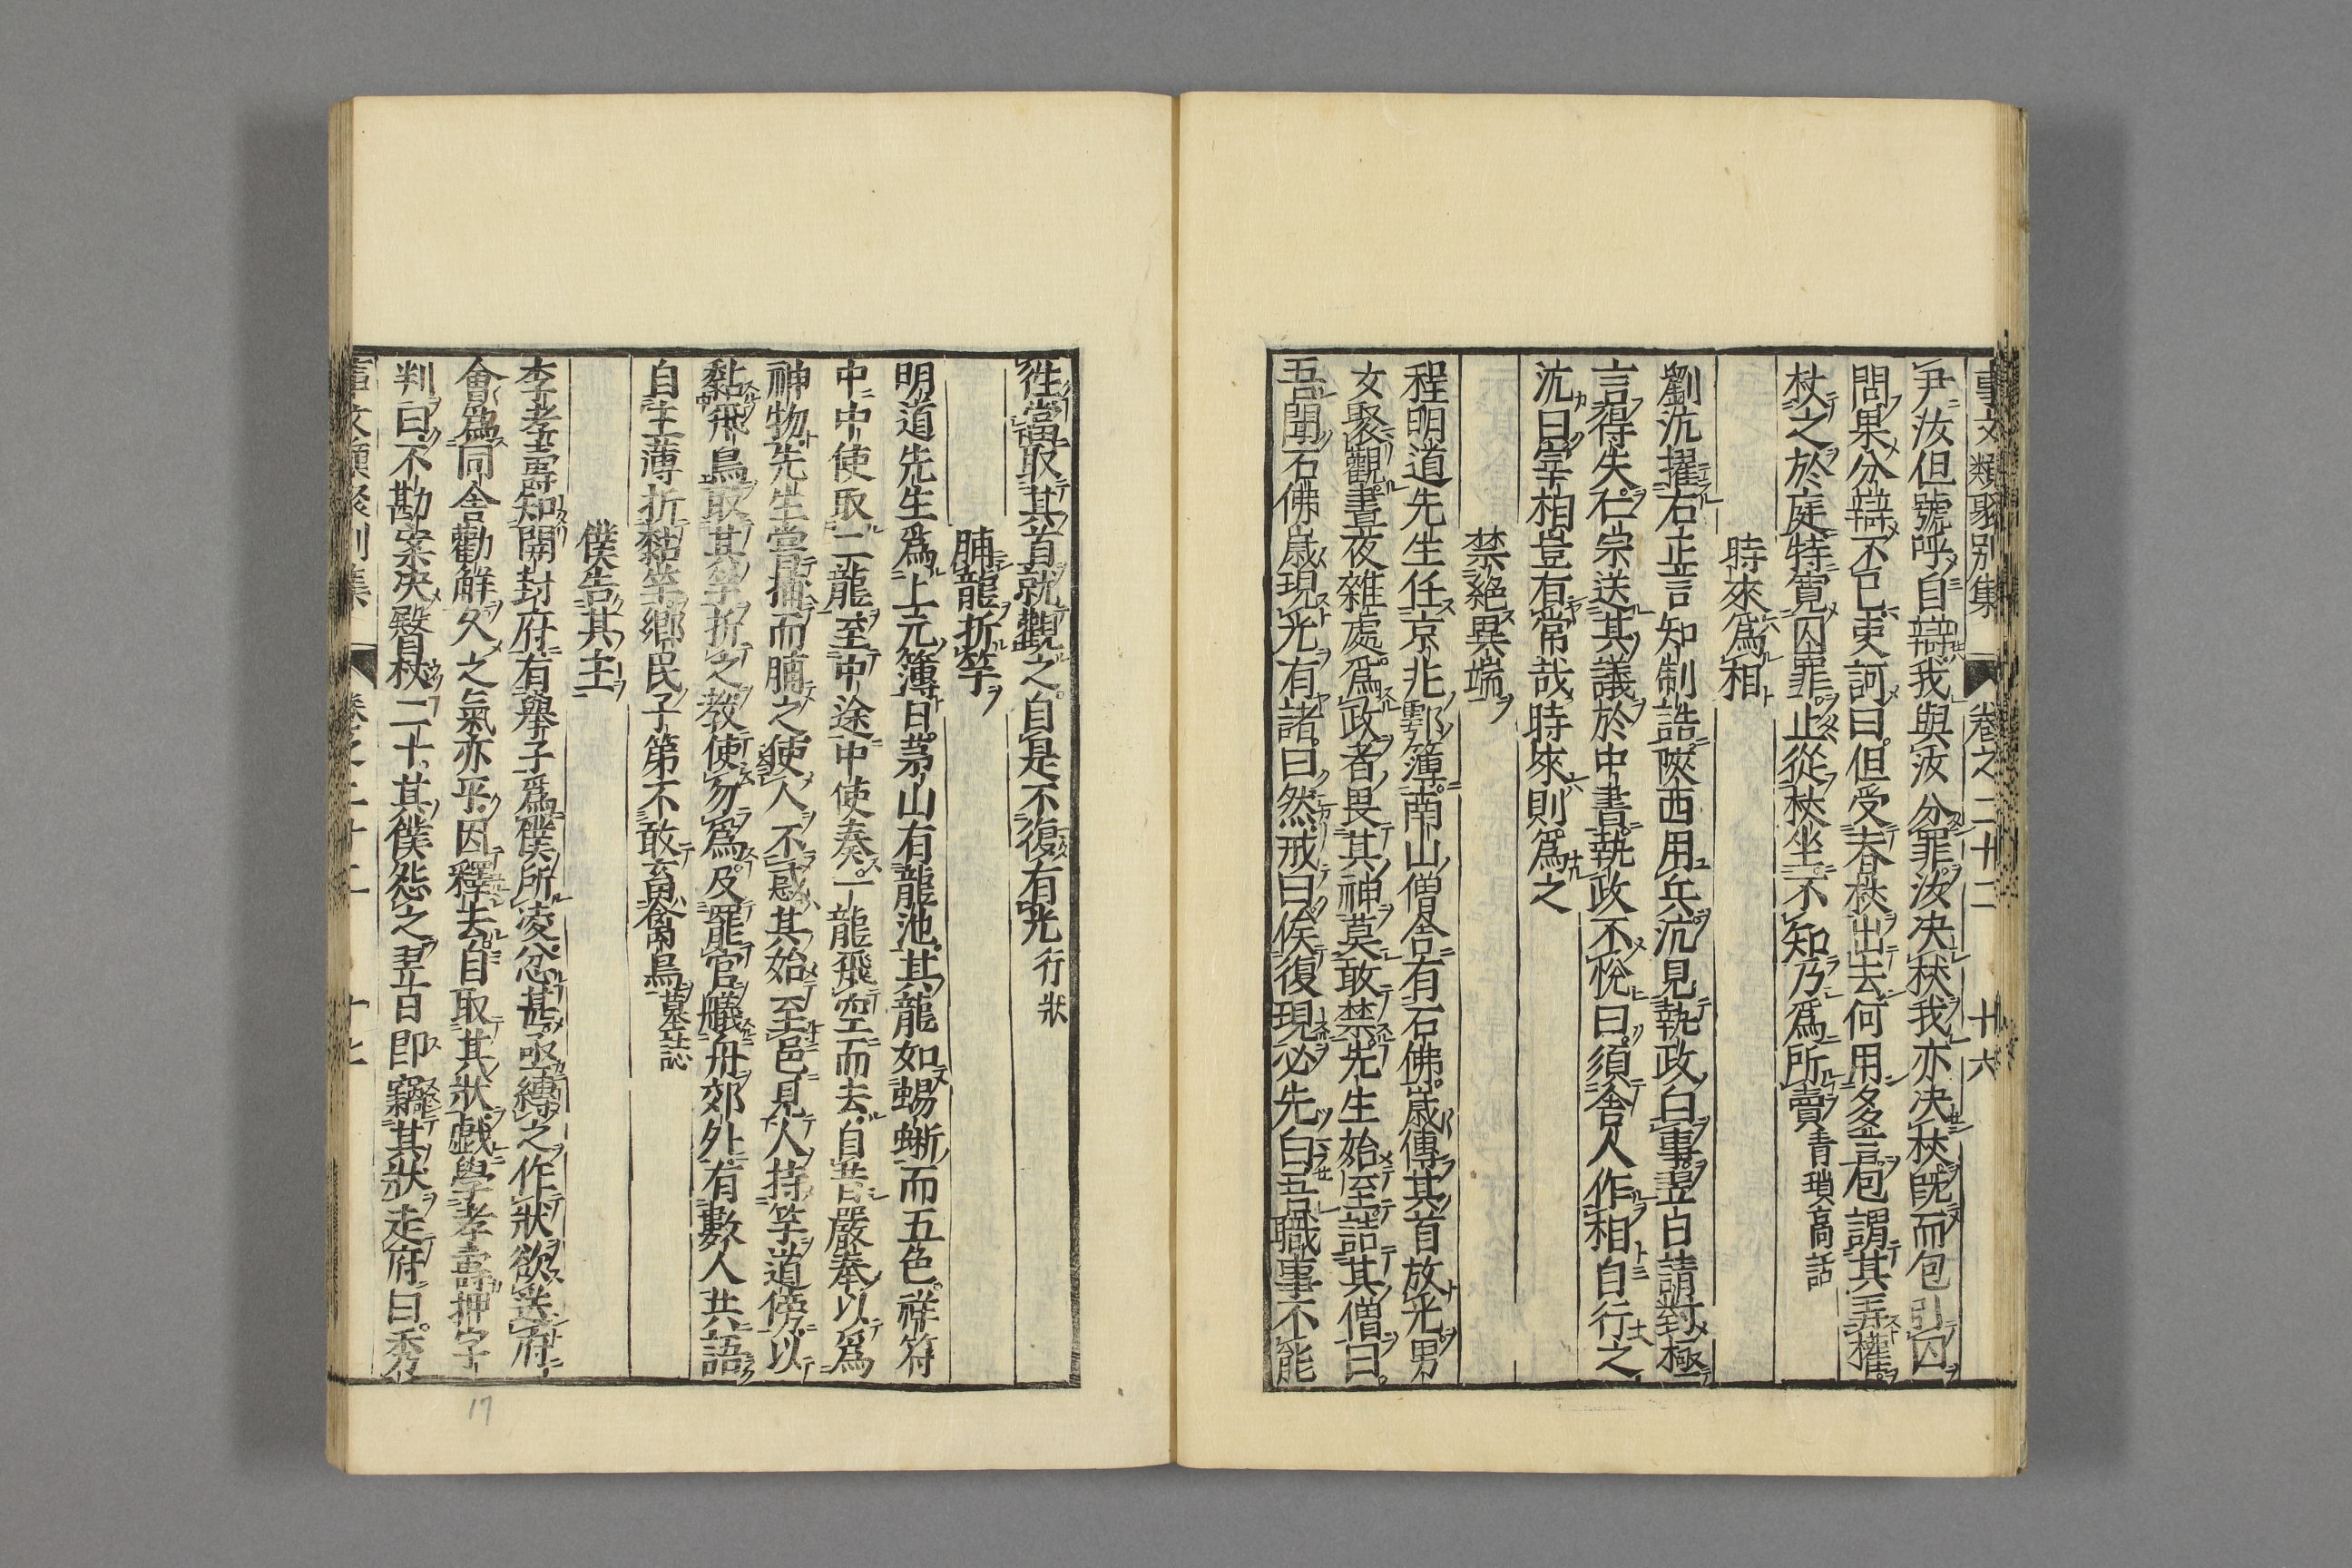 事文類聚別集 卷之二十二 十六
尹汝但號呼自辯我與汝分罪汝决杖我亦决杖既而包引囚
問果分辯不已吏訶曰但受脊杖出去何用多言包謂其弄權
杖之於庭特寛囚罪止從杖坐不知乃爲所賣青瑣高話
時來爲相
劉沆擢右正言知制誥陝西用兵沆見執政白事翌白請對極
言得失仁宗送其議於中書執政不悅曰須舍人作相自行之
沆曰宰相豈有常哉時來則爲之
禁絶異端
程明道先生任京兆鄠簿南山僧舎有石佛嵗傳其首放光男
女聚觀晝夜雜處爲政者畏其神莫敢禁先生始至詰其僧曰
吾聞石佛嵗現光有諸曰然戒曰俟復現必先白吾職事不能
徃當取其首就觀之自是不復有光行狀
脯龍折竿
明道先生爲上元簿日茅山有龍池其龍如蜴蜥而五色祥符
中中使取二龍至中途中使奏一龍飛空而去自昔嚴奉以爲
神物先生嘗捕而脯之使人不惑其始至邑見人持竿道傍以
黏飛鳥取其竿折之教使勿爲及罷官艤舟郊外有數人共語
自主薄折黏竿鄉民子第不敢畜禽鳥墓誌
僕告其主
李孝壽知開封府有舉子爲僕所凌忿甚亟縛之作狀欲送府
會爲同舎勸解久之氣亦平因釋去自取其狀戯學孝壽押字
判曰不勘案决臀杖二十其僕怨之翌日即竊其狀走府曰秀
卷之二十二 十七
17